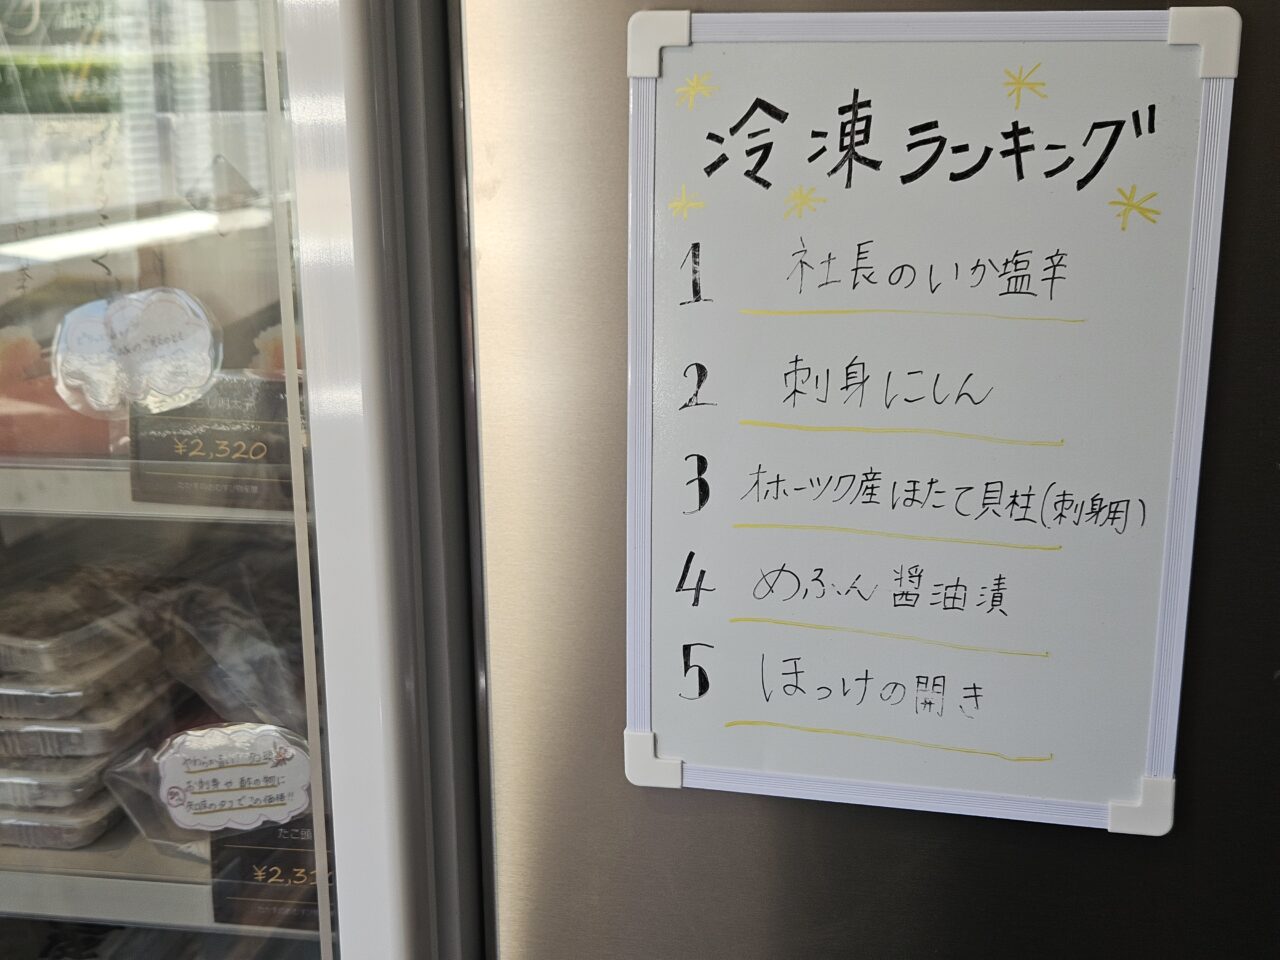 冷凍ランキング
1 社長のいか塩辛
2 刺身にしん
3 オホーツク産ほたて貝柱(刺身用)
4 めふん醤油漬
5 ほっけの開き
¥2,320
お刺身や酢の物に
たこ頭
¥2,31